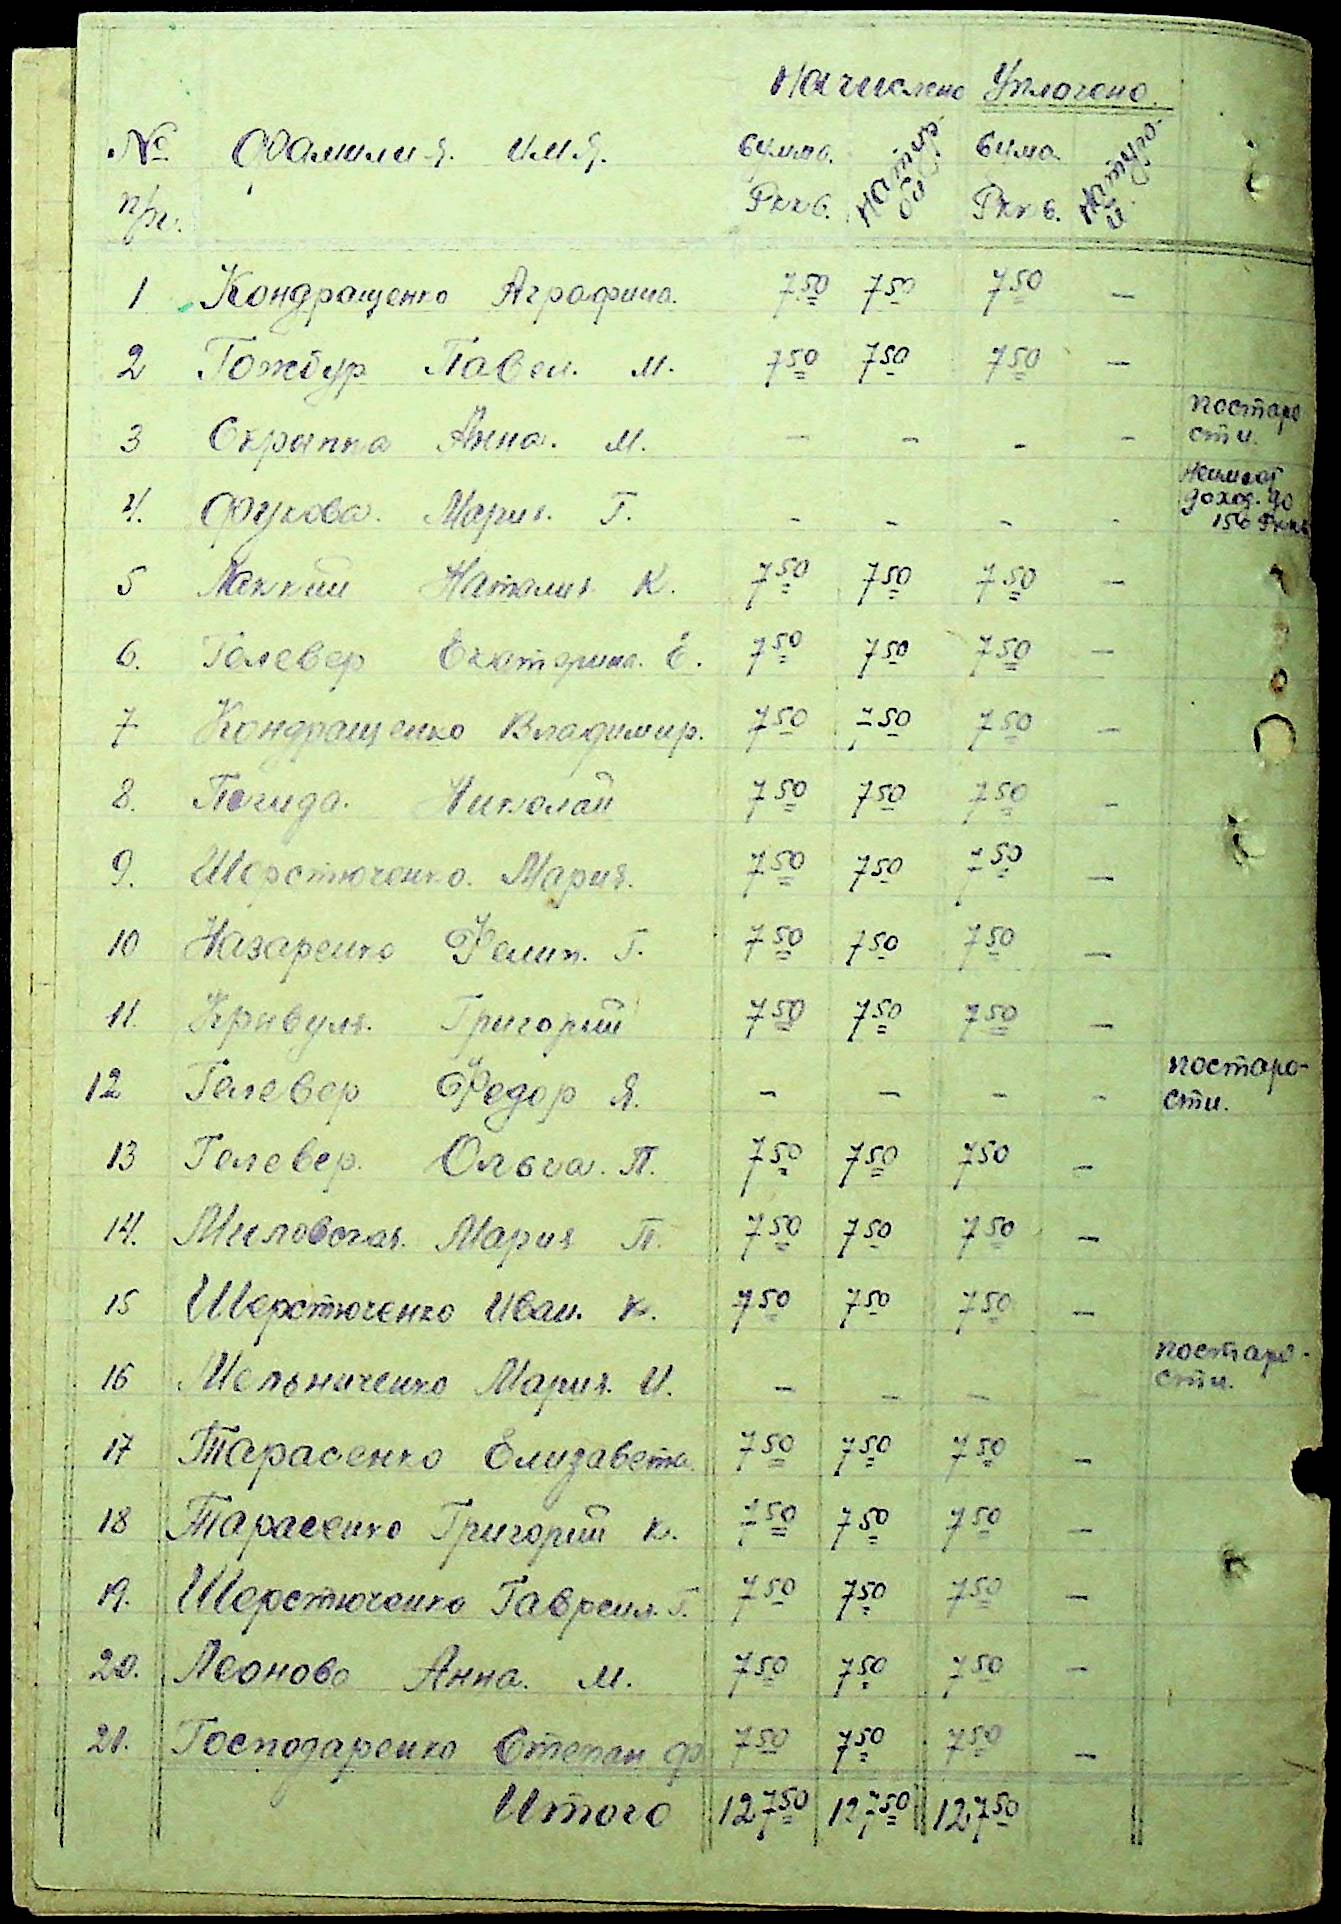 Начислено Уплочено.
№ Фамилия. имя. Сумма. Сума.
п/п. Рккв. Ркк в.
1 Кондращенко Аграфина. 7 50 7 50 7 50 —
2 Гожбур Павел. М. 7 50 7 50 7 50 —
3 Скрыпка Анна. М. — — - - по старо
сти.
4. Фукова. Мария. Г. - - - -
доход. до
150 Ркк
5 Наталия К. 7 50 7 50 7 50 —
6. Гелевер Екатерина. Е. 7 50 7 50 7 50 —
7 Кондращенко Владимир. 7 50 7 50 7 50 —
8. Николай 7 50 7 50 7 50 -
9. Шерстюченко. Мария. 7 50 7 50 7 50 —
10 Назаренко Фелип. Г. 7 50 7 50 7 50 —
11. Кривуля. Григорий 7 50 7 50 7 50 —
12 Гелевер Федор Я. — — - - по старо-
сти.
13 Гелевер. Ольга. П. 7 50 7 50 7 50 —
14. Миловская. Мария П. 7 50 7 50 7 50 —
15 Шерстюченко Иван. К. 7 50 7 50 7 50 —
16 Мельниченко Мария. И. — - - - по старо-
сти.
17 Тарасенко Елизавета. 7 50 7 50 7 50 —
18 Тарасенко Григорий К. 7 50 7 50 7 50 —
19. Шерстюченко Гавреил. Г. 7 50 7 50 7 50 —
20. Леоново Анна. М. 7 50 7 50 7 50 —
21. Господаренко Степан Ф 7 50 7 50 7 50 —
Итого 127 50 127 50 127 50